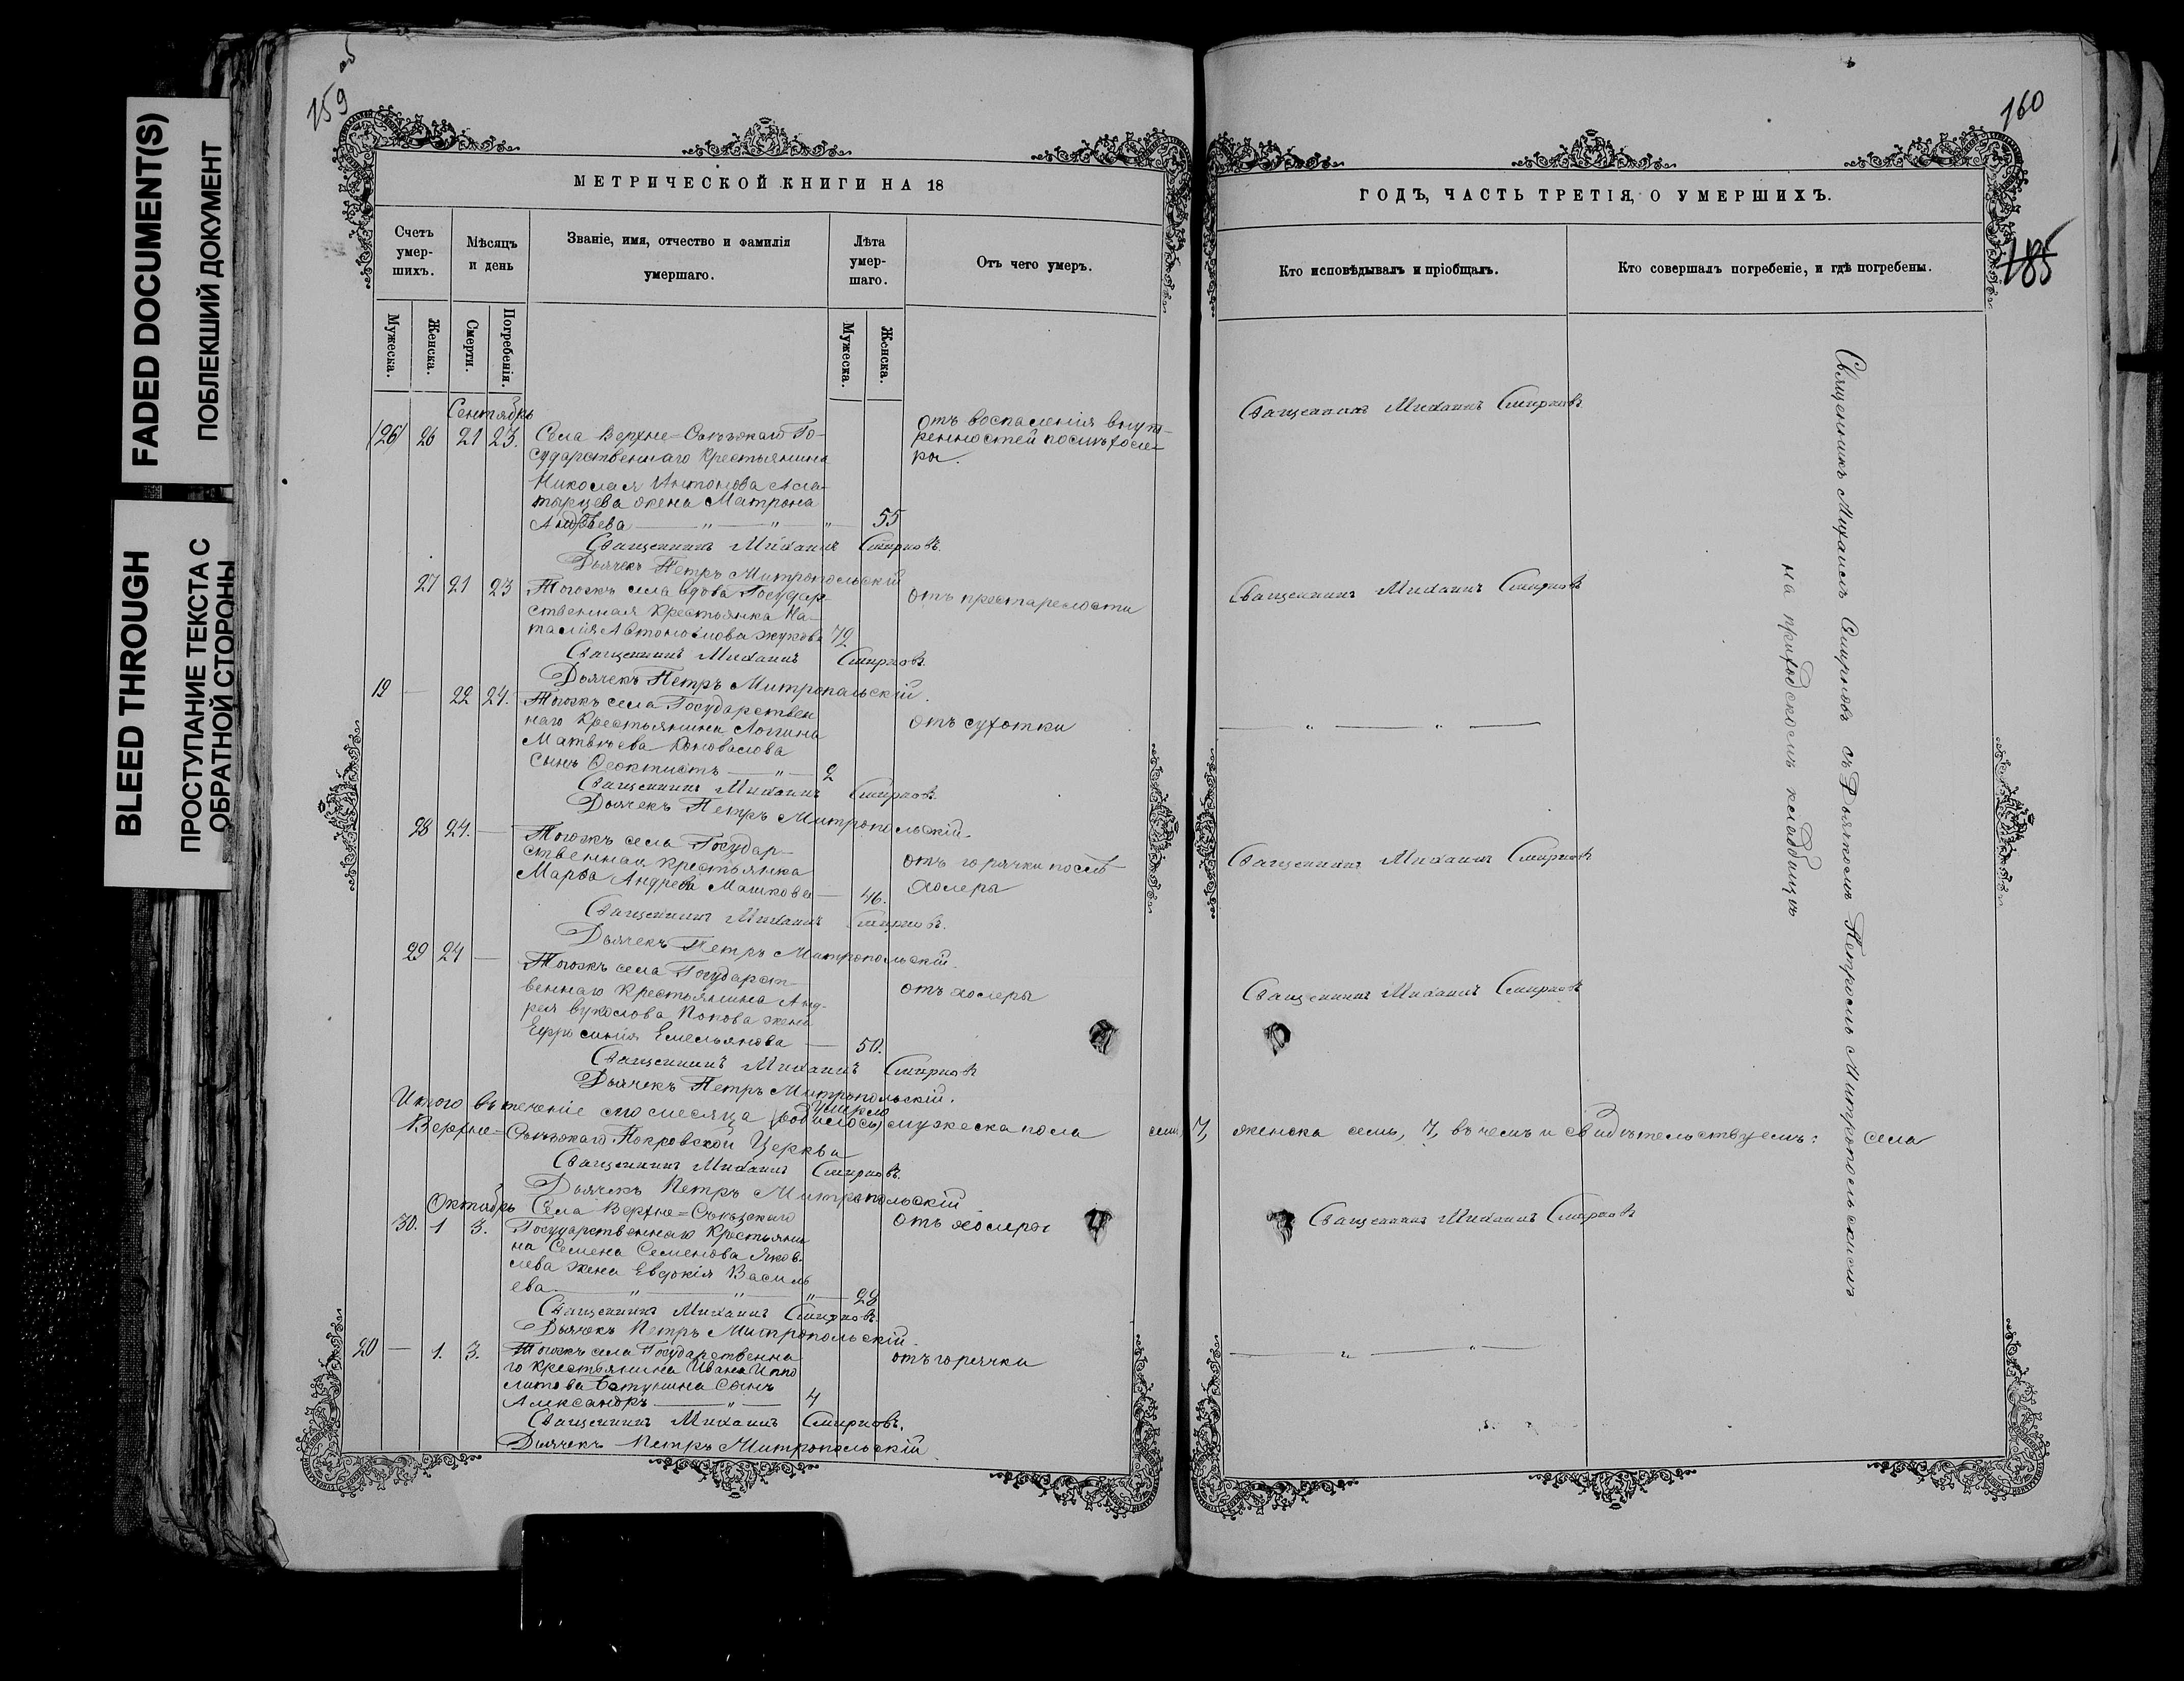 FADED DOCUMENT(S)
ПОБЛЕКШИЙ ДОКУМЕНТ
BLEED THROUGH
ПРОСТУПАНИЕ ТЕКСТА С
ОБРАТНОЙ СТОРОНЫ
159 об
МЕТРИЧЕСКОЙ КНИГИ НА 18
Счетъ
умер-
шихъ.
Мѣсяцъ
и день
Званіе, имя, отчество и фамилія
умершаго.
Лѣта
умер-
шаго.
Отъ чего умеръ.
Мужеска.
Женска.
Смерти.
Погребенія.
Мужеска.
Женска.
Сентябрь
(26) 26 21 23. Села Верхне=Го-
сударственнаго Крестьянина
Николая Антонова
жена Матрона
Андрѣева 55
отъ воспаленія внут-
ренностей послѣ холе-
ры.
Священникъ Михаилъ Смирновъ.
Дьячекъ Петръ Митропольскій
27 21 23 Тогожъ села вдова Государ-
ственная Крестьянка На-
талія Жукова 72
отъ престарелости
Священникъ Михаилъ Смирновъ.
Дьячекъ Петръ Митропольскій.
19 — 22 24. Тогожъ села Государствен
наго Крестьянина Логгина
Матвѣева Коновалова
сынъ Феоктистъ — " — 2
отъ сухотки
Священникъ Михаилъ Смирновъ.
Дьячекъ Петръ Митропольскій.
28 24. — Тогожъ села Государ-
ственная крестьянка
Марѳа Андреева Машкова — 46.
отъ горячки послѣ
холеры
Священникъ Михаилъ Смирновъ.
Дьячекъ Петръ Митропольскій.
29 24 — Тогожъ села Государст-
веннаго Крестьянина Анд-
рея Вуколова Попова жена
Ефросинія Емельянова — 50.
отъ холеры
Священникъ Михаилъ Смирновъ
Дьячекъ Петръ Митропольскій.
умерло
Итого въ теченіе сего месяца (родилось) мужеска пола
Верхне= Покровской Церкви
Священникъ Михаилъ Смирновъ.
Дьячекъ Петръ Митропольскій
Октябрь
Села Верхне=
30. 1 3. Государственнаго Крестьяни
на Семена Семенова Яков-
лева жена Евдокія Василь
ева — " — " — " — 28
отъ холеры
Священникъ Михаилъ Смирновъ.
Дьячекъ Петръ Митропольскій.
20 — 1. 3. Тогожъ села Государственна
го крестьянина Ивана Иппо
литова Батурина Сынъ
Александръ — " — 4
отъ горячки
Священникъ Михаилъ Смирновъ.
Дьячекъ Петръ Митропольскій
160
185
ГОДЪ, ЧАСТЬ ТРЕТІЯ, О УМЕРШИХЪ.
Кто исповѣдывалъ и пріобщалъ.
Кто совершалъ погребеніе, и гдѣ погребены.
Священникъ Михаилъ Смирновъ
Священникъ Михаилъ Смирновъ
— " — " —
Священникъ Михаилъ Смирновъ
Священникъ Михаилъ Смирновъ
семь, 7, женска семь, 7, въ чемъ и свидѣтельствуемъ: села
Священникъ Михаилъ Смирновъ
— " — " —
Священникъ Михаилъ Смирновъ съ Дьячкомъ Петромъ Митропольскимъ
на приходскомъ кладбищѣ